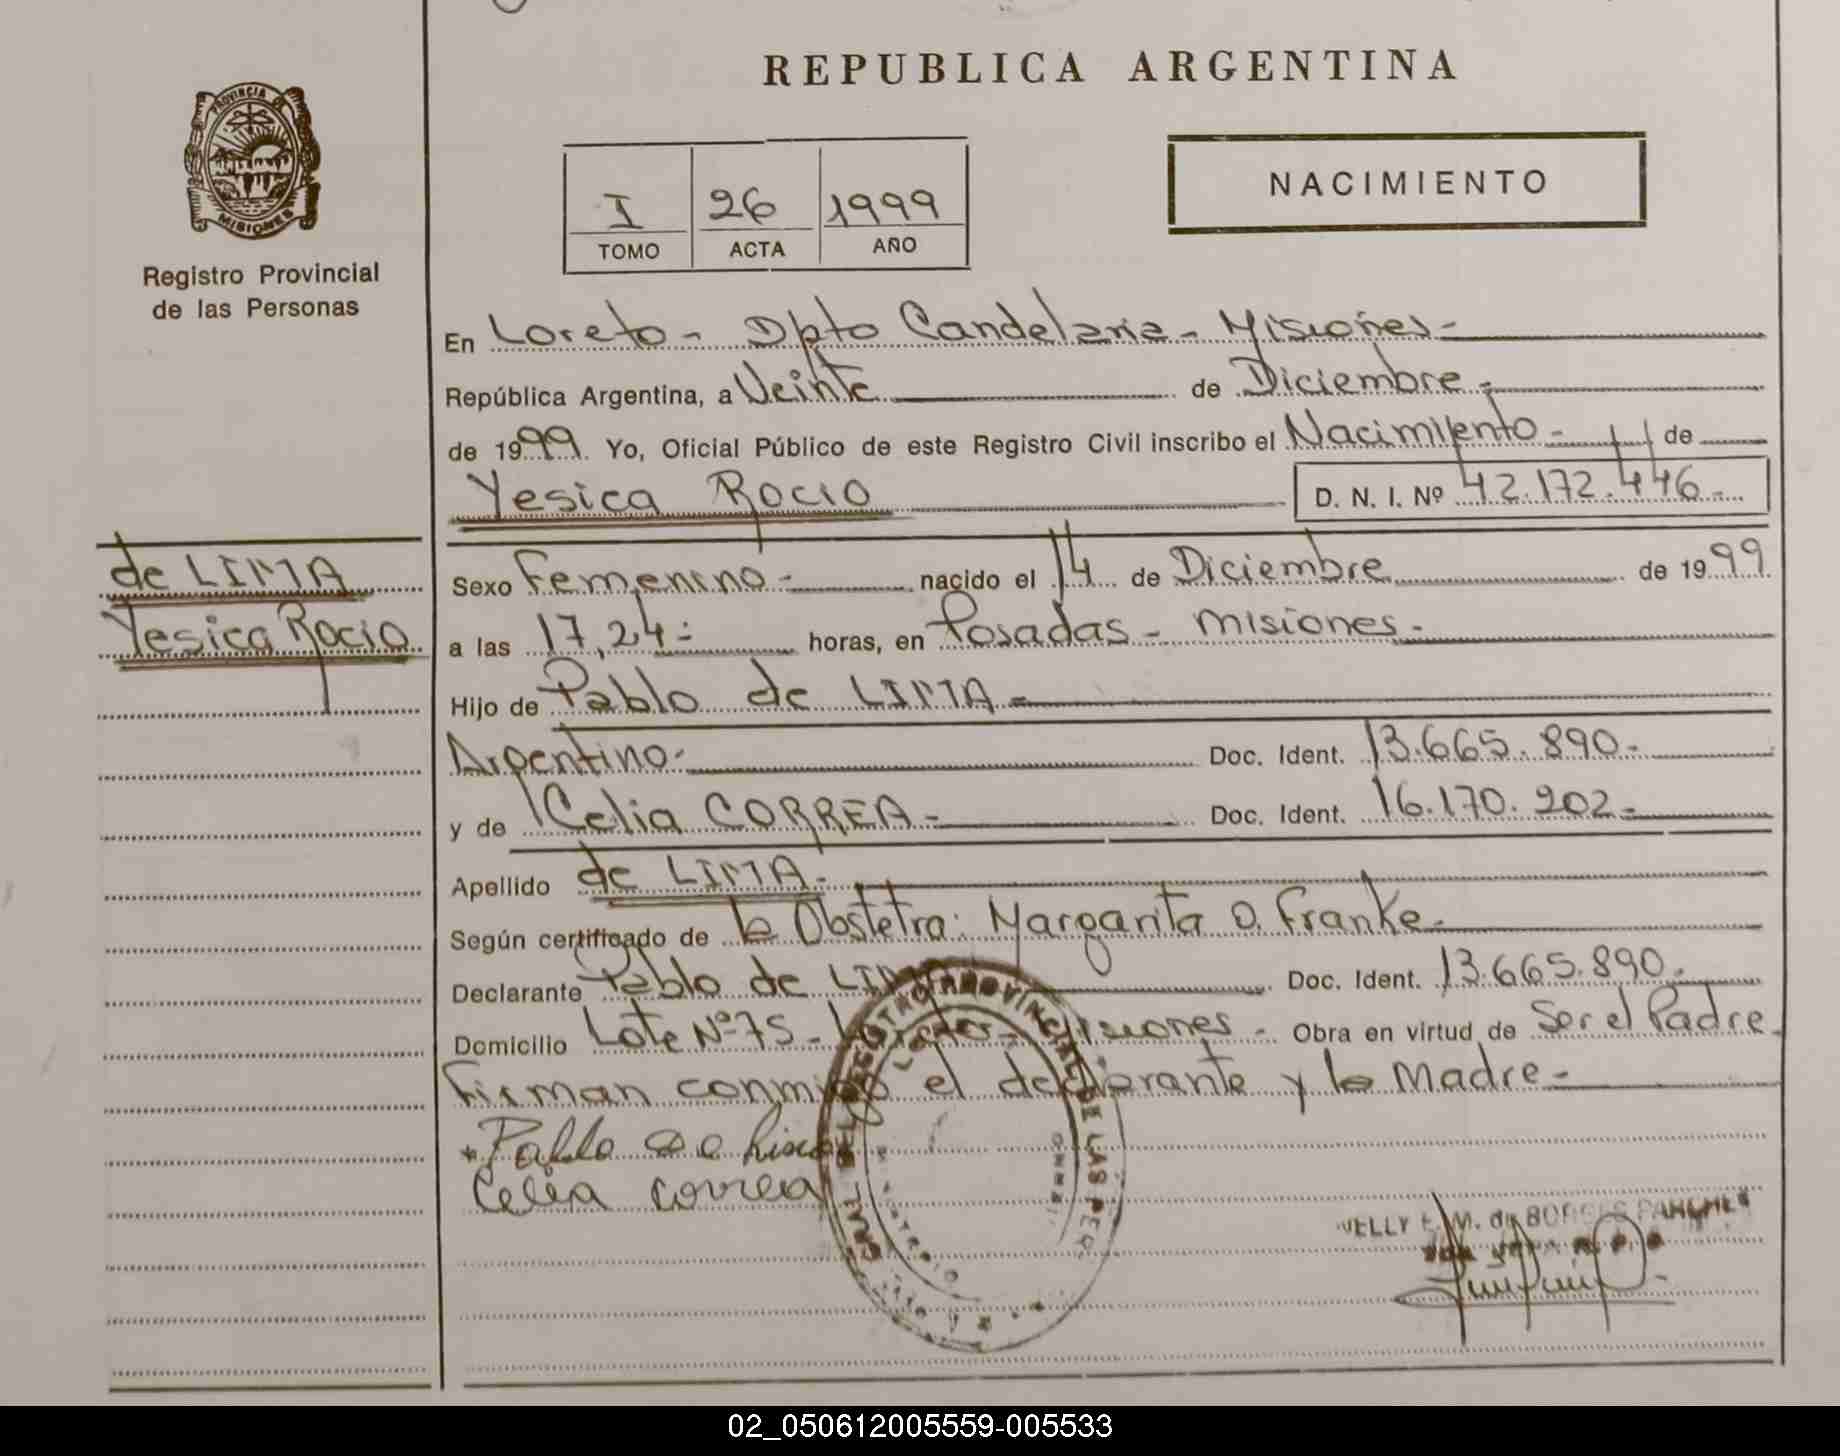 REPUBLICA ARGENTINA
PROVINCIA DE
MISIONES
Registro Provincial
de las Personas
I 26 1999
TOMO ACTA AÑO
NACIMIENTO
En Loreto - Dpto Candelaria - Misiones -
República Argentina, a Veinte de Diciembre -
de 1999 Yo, Oficial Público de este Registro Civil inscribo el Nacimiento - de
Yesica Rocio D. N. I. Nº 42.172.446 -
de LIMA
Yesica Rocio
Sexo Femenino - nacido el 14 de Diciembre de 1999
a las 17,24 - horas, en Posadas - Misiones -
Hijo de Pablo de LIMA -
Argentino - Doc. Ident. 13.665.890 -
y de Celia CORREA - Doc. Ident. 16.170.202 -
Apellido de LIMA -
Según certificado de la Obstetra: Margarita O. Franke -
Declarante Pablo de LIMA Doc. Ident. 13.665.890 -
Domicilio Lote Nº 75 - Misiones - Obra en virtud de Ser el Padre -
Firman conmigo el declarante y la Madre -
Pablo de Lima
Celia Correa
REGISTRO PROVINCIAL DE LAS PER
NELLY E. M. de BORGES
02_050612005559-005533